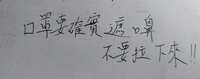 口罩要確實遮口鼻
不要拉下來!!